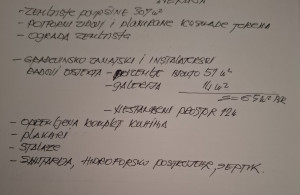 - ZEMLJIŠTE POVRŠINE 309 m²
- POTPORNI ZIDOVI I PLANIRANE KASKADE TERENA
- OGRADA ZEMLJIŠTA
- GRAĐEVINSKO ZANATSKI I INSTALATERSKI
RADOVI OBJEKTA - BRUTO 57 m²
- GALERIJA 11 m²
- NESTAMBENI PROSTOR 12
- OPREMLJENA KOMPLET KUHINJA
- PLAKARI
- STALAŽE
- SANITARIJA, HIDROFORSKO POSTROJENJE, SEPTIK.